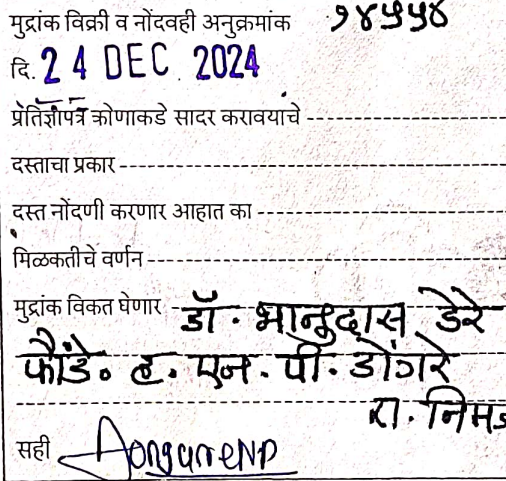 मुद्रांक विक्री व नोंदवही अनुक्रमांक १४५५४
दि. 24 DEC 2024
प्रतिज्ञापत्र कोणाकडे सादर करावयाचे
दस्ताचा प्रकार
दस्त नोंदणी करणार आहात का
मिळकतीचे वर्णन
मुद्रांक विकत घेणार डॉ. भानुदास डेरे
फौंडे. ह. एन. पी. डोंगरे
रा.
सही DongareNP